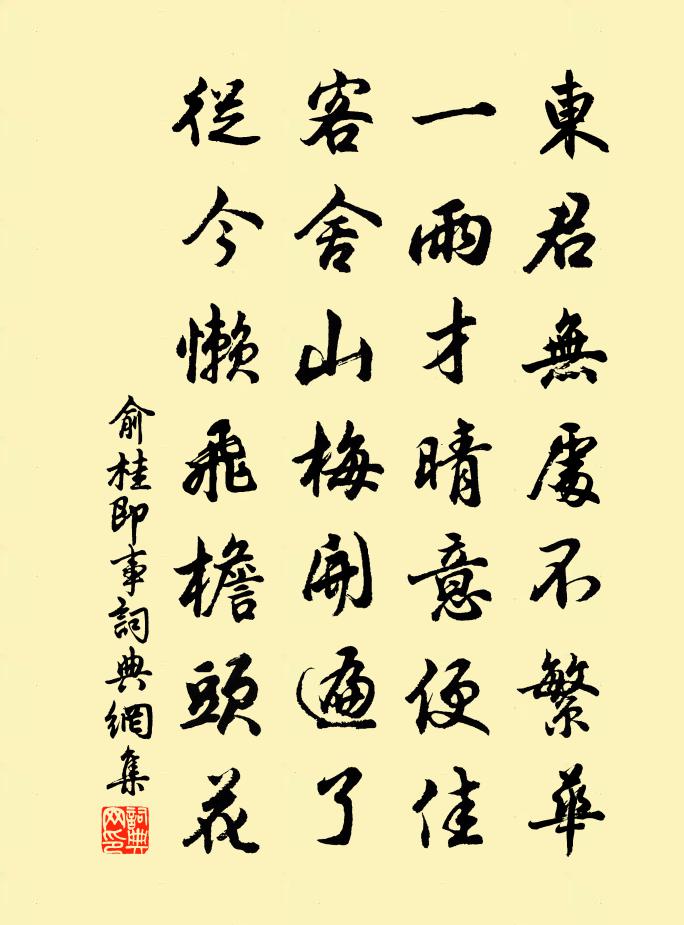 東君無處不繁華
一雨才晴意便佳
客舍山梅開遍了
從今懶飛檐頭花
俞桂即事詞典網集
詞典网印